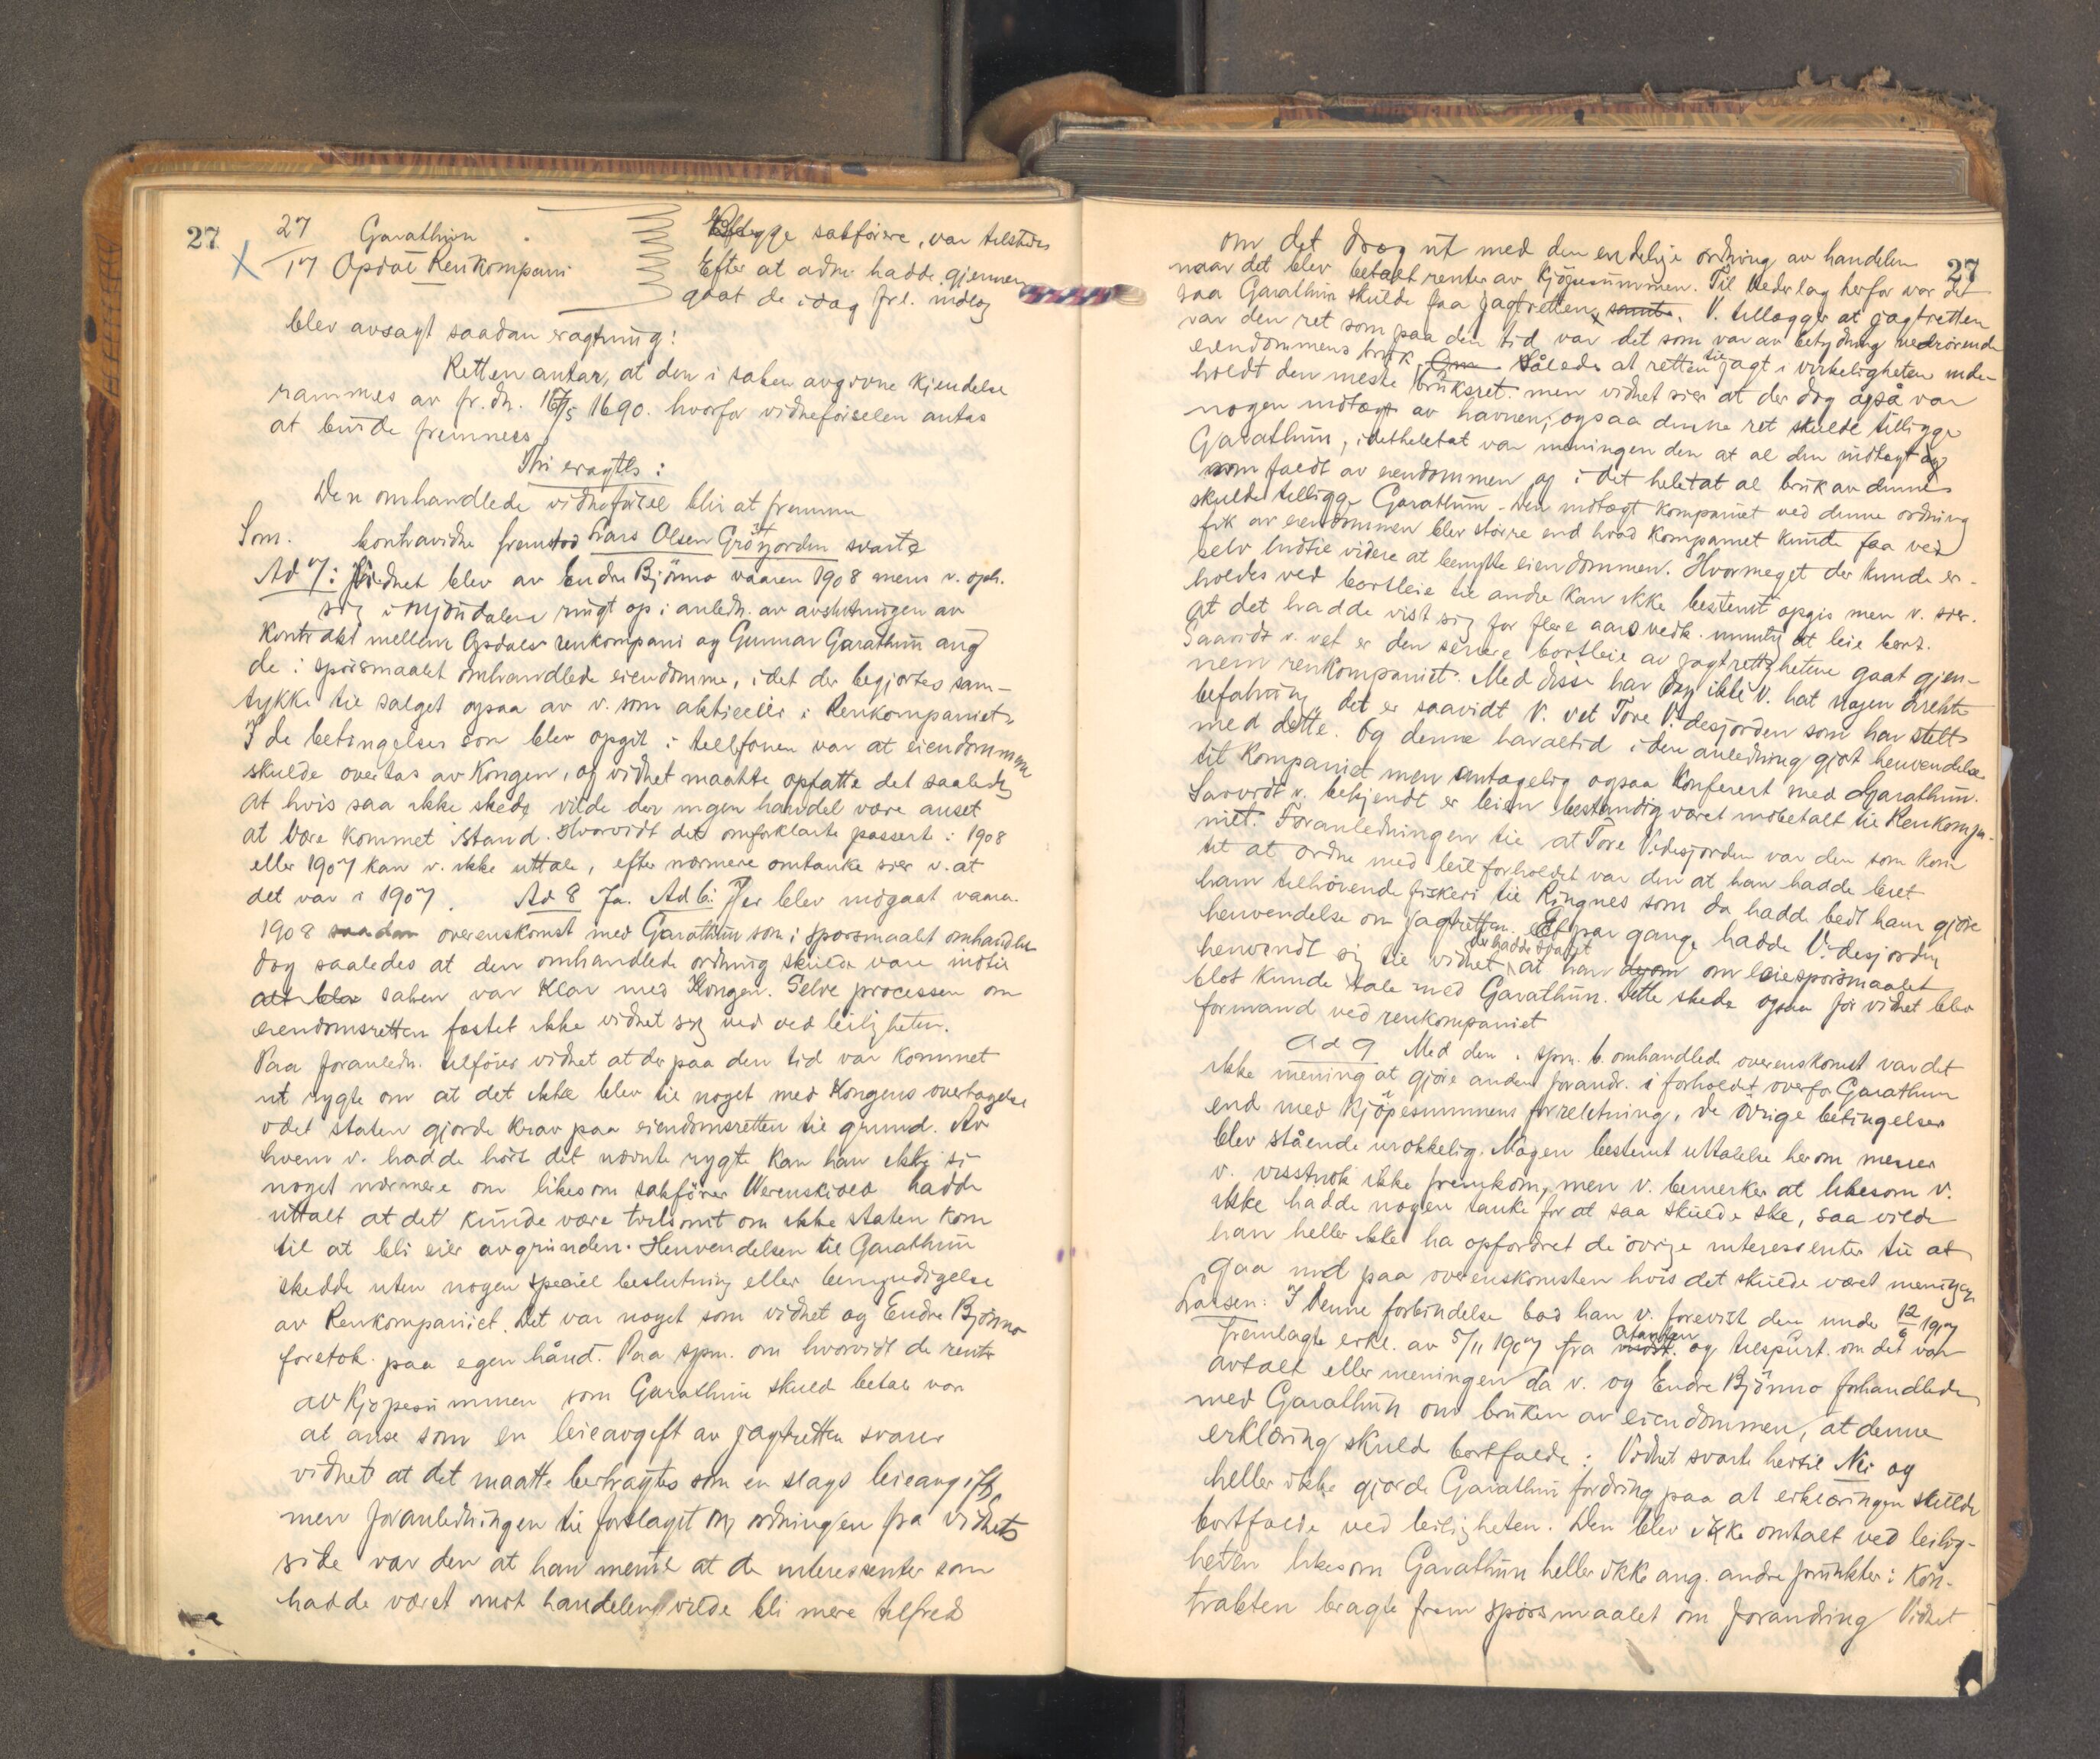 27
27 Garathun
17 Opdal Renkompani
Begge sakförere, var tilstede
Efter at adm. hadde gjennem
gaat de idag frl. indlæg
blev avsagt saadan eragtning:
Retten antar, at den i saken avgivne kjendelse
rammes av fr. dn. 1690. hvorfor vidneförselen antas
at burde fremmes
Thi eragtes:
Den omhandlede vidneförsel blir at fremme
Som kontravidne fremstod Lars Olsen svarte
Ad 7: Vidnet blev av Endre Björmo vaaren 1908 mens v. oph.
sig i ringt op i anledn. av avslutningen av
Kontrakt mellem Opdals renkompani og Gunnar Garathun ang
de i spörsmaalet omhandlede eiendomme, idet der begjærtes sam-
tykke til salget ogsaa av v. som aktieeier i Renkompaniet.
I de betingelser som blev opgit i tellfonen var at eiendommene
skulde overtas av Kongen, og vidnet maatte opfatte det saaledes
at hvis saa ikke skede vilde der ingen handel være anset
at være kommet istand. Hvorvidt det omforklarte passerte i 1908
eller 1907 kan v. ikke uttale, efter nærmere omtanke sier v. at
det var i 1907. Ad 8 Ja. Ad 6: Der blev indgaat vaaren
1908 saadan overenskomst med Garathun som i spörsmaalet omhandlet
dog saaledes at den omhandlede ordning skulde vare indtil
saken var klar med Kongen. Selve processen om
eiendomsretten fæstet ikke vidnet sig ved ved leiligheten.
Paa foranledn. tilföier vidnet at der paa den tid var kommet
ut rygte om at det ikke blev til noget med Kongens overtagelse
idet staten gjorde krav paa eiendomsretten til grund. Av
hvem v. hadde hört det nævnte rygte kan han ikke si
noget nærmere om likesom sakförer Werenskiold hadde
uttalt at det kunde være tvilsomt om ikke staten kom
til at bli eier av grunden. Henvendelsen til Garathun
skedde uten nogen speciel beslutning eller bemyndigelse
av Renkompaniet. Det var noget som vidnet og Endre Björmo
foretok paa egen hånd. Paa spm. om hvorvidt de rente
av Kjøpesummen som Garathun skuld betale var
at anse som en leieavgift av jagtretten svarer
vidnet at det maatte betragtes som en slags leieavgift
men foranledningen til forslaget om ordningen fra vidnets
side var den at han mente at de interessenter som
hadde været imot handelen vilde bli mere tilfreds
27
om det drog ut med den endelige ordning av handelen
naar det blev betalt renter av Kjöpesummen. Til Vederlag herfor var det
saa Garathun skulde faa jagtretten samt. V. tillægger at jagtretten
var den ret som paa den tid var det som var av betydning vedrörende
eiendommens bruk. Således at retten til jagt i virkeligheten inde-
holdt den meste bruksret men vidnet sier at der dog også var
nogen indtægt av havnen, ogsaa denne ret skulde tilligge
Garathun, idetheletat var meningen den at al den indtægt
som faldt av eiendommen og i det heletat al bruk av dennes
skulde tilligge Garathun. Den indtægt kompaniet ved denne ordning
fik av eiendommen blev större end hvad Kompaniet kunde faa ved
selv indtil videre at benytte eiendommen. Hvormeget der kunde er-
holdes ved bortleie til andre kan ikke bestemt opgis men v. sier
at det hadde vist sig for flere aars vedk. umulig at leie bort.
Saavidt v. vet er den senere bortleie av jagtrettighetene gaat gjen-
nem renkompaniet. Med disse har dog ikke V. hat nogen direkte
befatning, det er saavidt V. vet Tore Videsjorden som har stelt
med dette. Og denne har altid i den anledning gjort henvendelse
til Kompaniet men antagelig ogsaa Konferert med Garathun.
Saavidt v. bekjendt er leien bestandig været indbetalt til Renkompa-
niet. Foranledningen til at Tore Videsjorden var den som kom
til at ordne med leieforholdet var den at han hadde leiet
ham tilhörende fiskeri til Ringnes som da hadde bedt ham gjöre
henvendelse om jagtretten. Et par gange hadde Videsjorden
henvendt sig til vidnet der hadde svart at han om leiespörsmaalet
blot kunde tale med Garathun. Dette skede ogsaa för vidnet blev
formand ved renkompaniet
Ad 9 Med den i spm. 6 omhandlede overenskomst var det
ikke mening at gjöre anden forandr. i forholdet overfor Garathun
end med Kjöpesummens forrentning, de övrige betingelser
blev stående urokkelig. Nogen bestemt uttalelse herom mener
v. visstnok ikke fremkom, men v. bemerker at likesom v.
ikke hadde nogen tanke for at saa skulde ske, saa vilde
han heller ikke ha opfordret de övrige interessenter til at
gaa ind paa overenskomsten hvis det skulde været meningen
Larsen: I denne forbindelse bad han v. forevist den under 12/6 1917
fremlagte erkl. av 5/11 1907 fra citanten og tilspurt om det var
avtalt eller meningen da v. og Endre Björmo forhandlede
med Garathun om bruken av eiendommen, at denne
erklæring skulde bortfalde: Vidnet svarte hertil Nei og
heller ikke gjorde Garathun fordring paa at erklæringen skulde
bortfalde ved leiligheten. Den blev ikke omtalt ved leilig-
heten likesom Garathun heller ikke ang. andre punkter i Kon-
trakten bragte frem spörsmaalet om forandring Vidnet